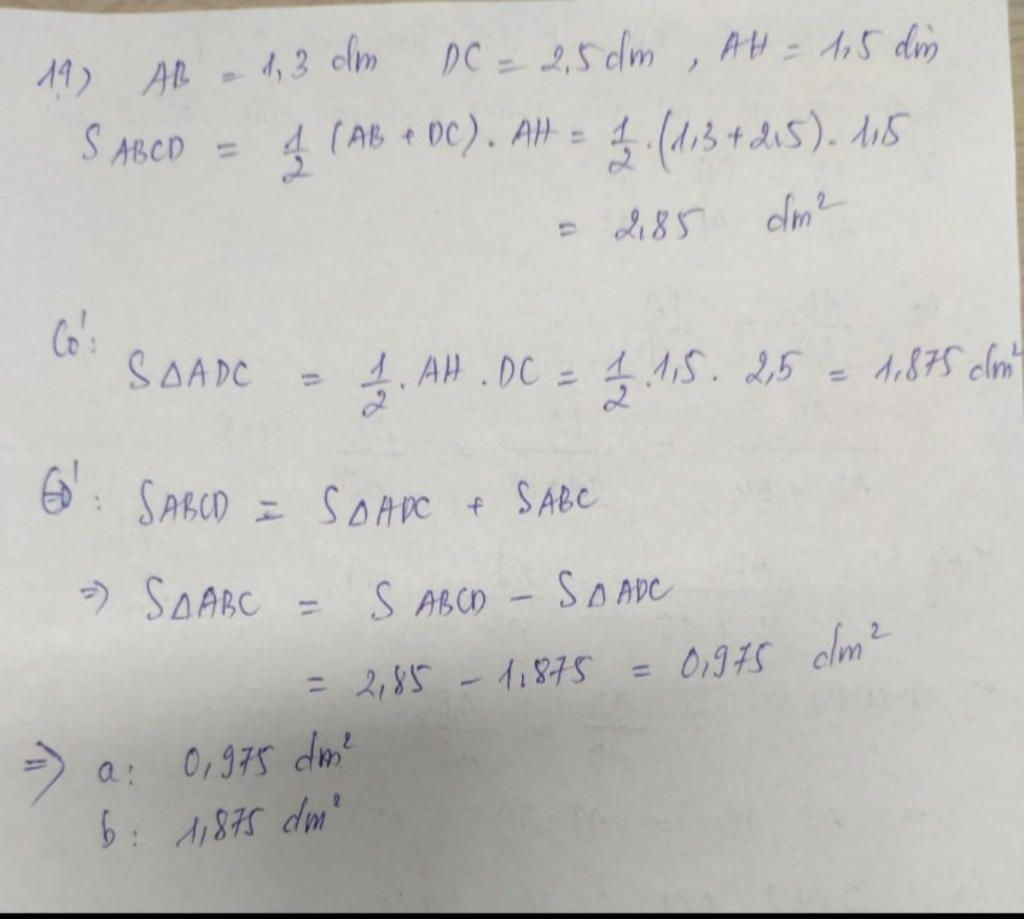 19) AB = 1,3 dm DC = 2,5 dm , AH = 1,5 dm
S ABCD = 1/2 (AB + DC) . AH = 1/2 . (1,3 + 2,5) . 1,5
= 2,85 dm²
Có:
S∆ADC = 1/2 . AH . DC = 1/2 . 1,5 . 2,5 = 1,875 dm²
Có: SABCD = S∆ADC + SABC
=> S∆ABC = S ABCD - S∆ADC
= 2,85 - 1,875 = 0,975 dm²
=> a: 0,975 dm²
b: 1,875 dm²